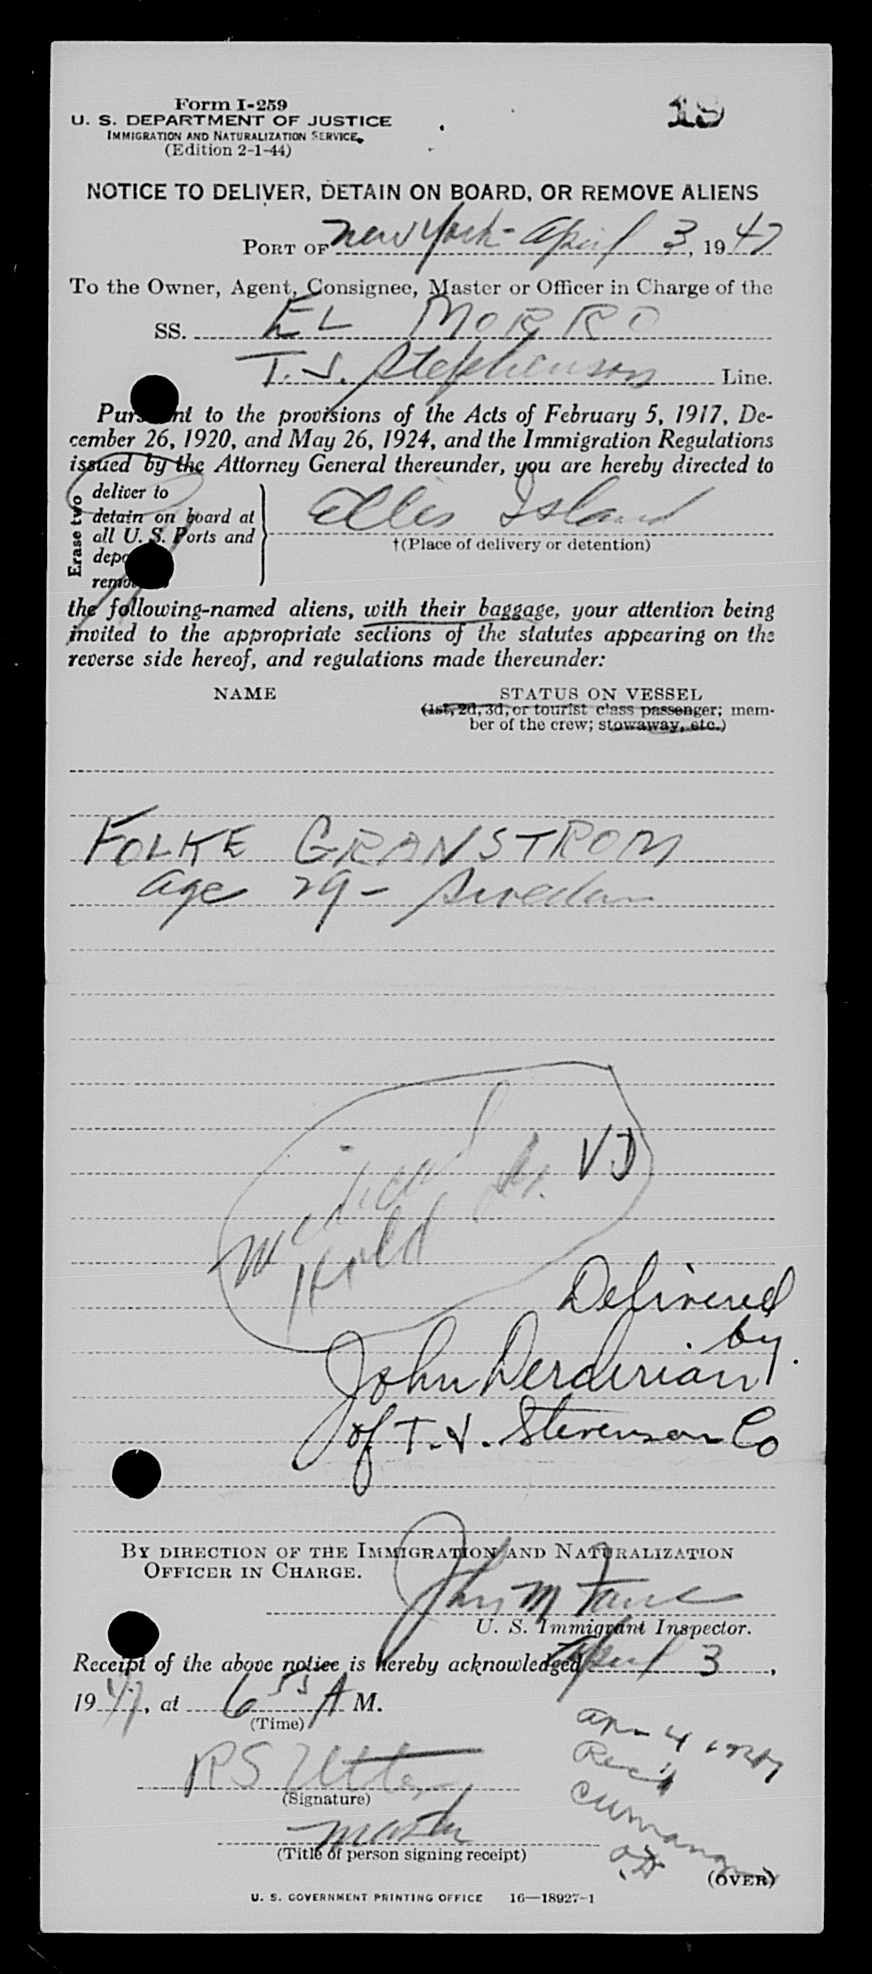 Form I-259
19
U. S. DEPARTMENT OF JUSTICE
IMMIGRATION AND NATURALIZATION SERVICE
(Edition 2-1-44)
NOTICE TO DELIVER, DETAIN ON BOARD, OR REMOVE ALIENS
PORT OF New York - April 3, 1947
To the Owner, Agent, Consignee, Master or Officer in Charge of the
SS. EL MORRO
T. J. Stephenson Line.
Pursuant to the provisions of the Acts of February 5, 1917, De-
cember 26, 1920, and May 26, 1924, and the Immigration Regulations
issued by the Attorney General thereunder, you are hereby directed to
Erase two
deliver to
detain on board at
all U. S. Ports and
remove
Ellis Island
†(Place of delivery or detention)
the following-named aliens, with their baggage, your attention being
invited to the appropriate sections of the statutes appearing on the
reverse side hereof, and regulations made thereunder:
NAME STATUS ON VESSEL
(1st, 2d, 3d, or tourist class passenger; mem-
ber of the crew; stowaway, etc.)
FOLKE GRANSTROM
age 29 - Sweden
medical
Hold for VD
Delivered
by
John Derderian
of T. J. Stevenson Co
BY DIRECTION OF THE IMMIGRATION AND NATURALIZATION
OFFICER IN CHARGE.
U. S. Immigrant Inspector.
Receipt of the above notice is hereby acknowledged April 3,
1947, at 6 55 A M.
(Time)
RS
(Signature)
Master
(Title of person signing receipt)
Apr 4 1947
Rec'd
(OVER)
U. S. GOVERNMENT PRINTING OFFICE 16—18927-1